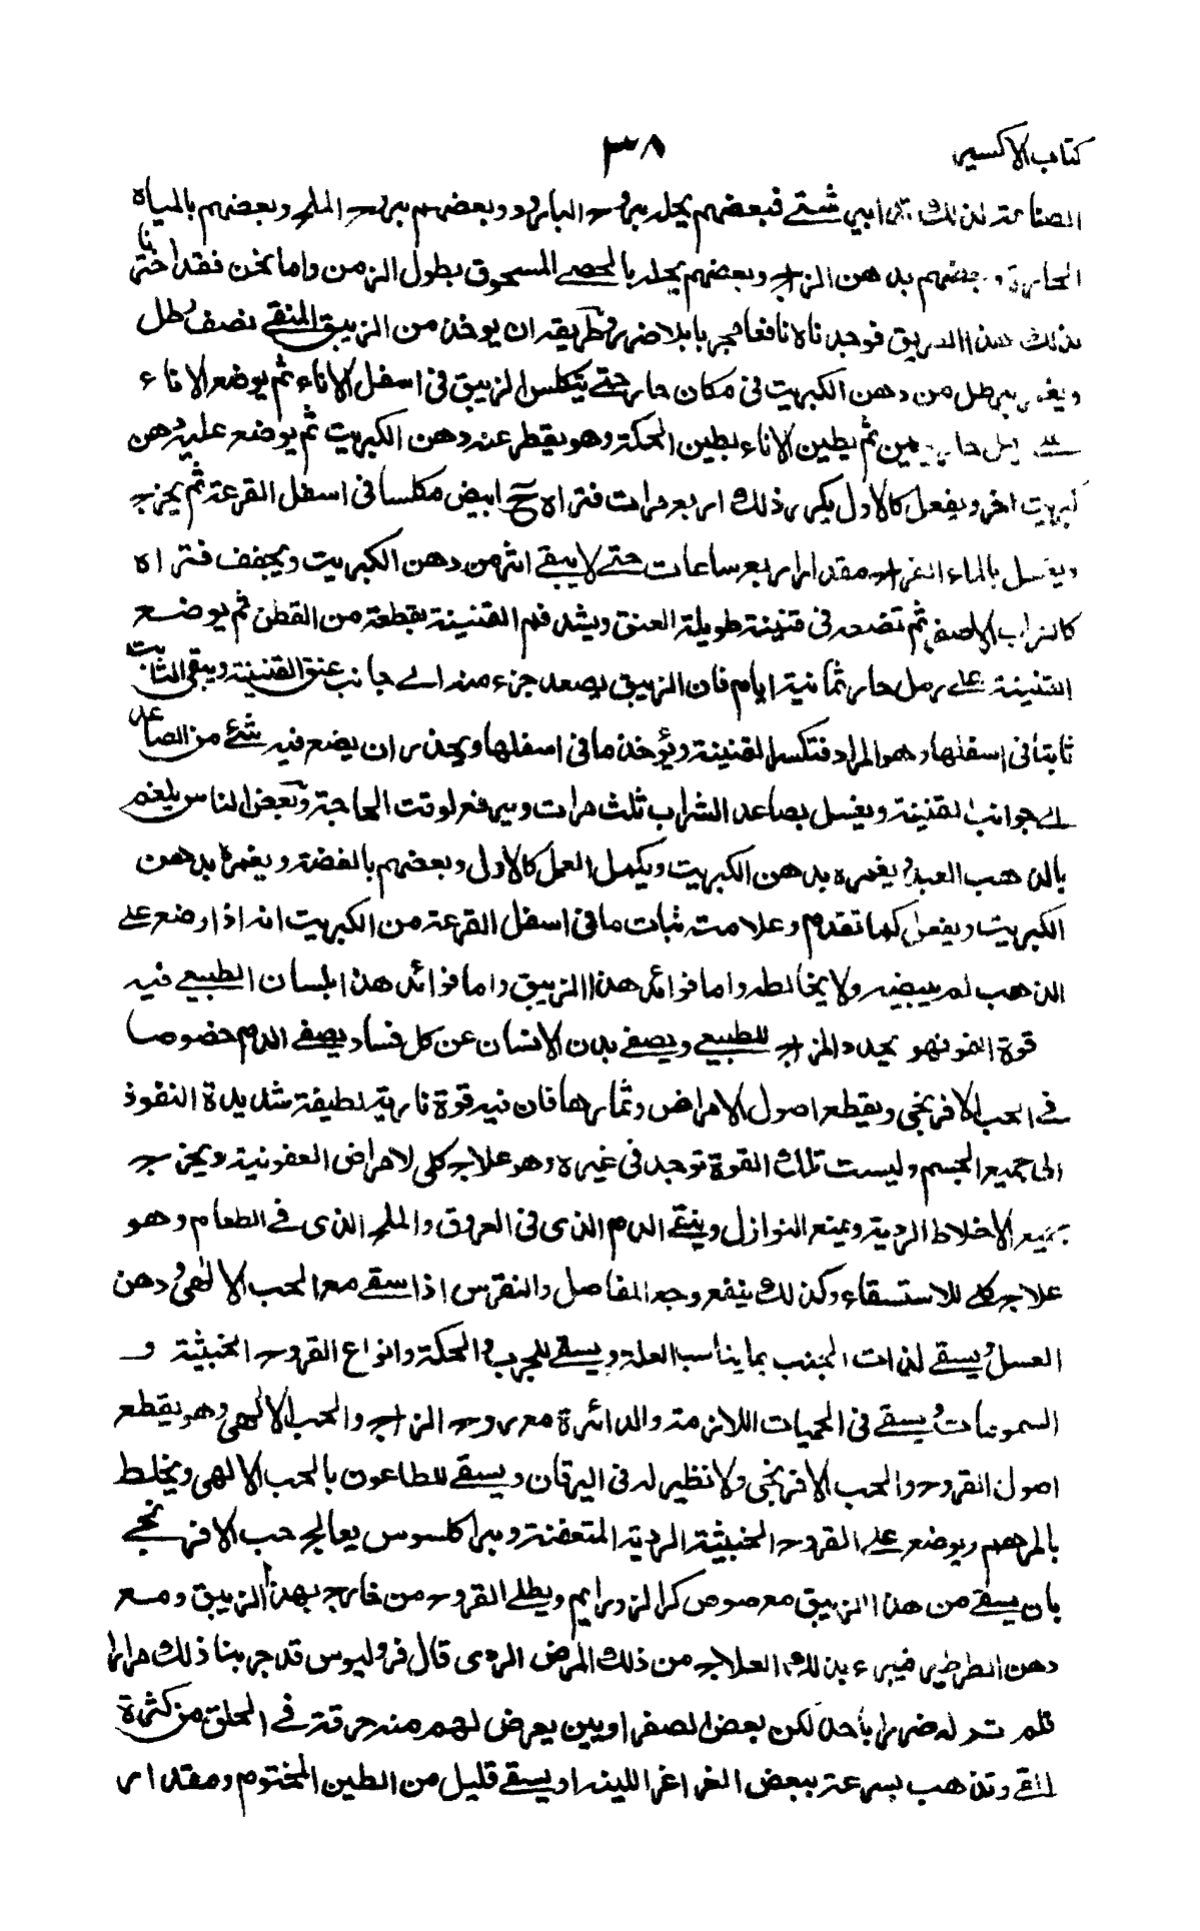 كتاب الاكسير ٣٨
الصناعة لذلك تدابير شتى فبعضهم يحله بروح البارود وبعضهم بروح الملح وبعضهم بالمياه
الحارة وبعضهم بدهن الزاج وبعضهم يحله بالحصى المسحوق بطول الزمن واما نحن فقد اخترنا
بذلك هذا الطريق فوجدناه نافعا مجربا بلا ضرر وطريقه ان يوخذ من الزيبق المنقى نصف رطل
ويغمر برطل من دهن الكبريت فى مكان حار حتى يتكلس الزيبق فى اسفل الاناء ثم يوضع الاناء
على رمل حار يومين ثم يطين الاناء بطين الحكمة وهو يقطر عنه دهن الكبريت ثم يوضع عليه دهن
كبريت اخر ويفعل كالاول يكرر ذلك اربع مرات فتراه ح ابيض مكلسا فى اسفل القرعة ثم يخرج
ويغسل بالماء القراح مقدار اربع ساعات حتى لا يبقى اثر من دهن الكبريت ويجفف فتراه
كالتراب الاصفر ثم تضعه فى قنينة طويلة العنق ويشد فم القنينة بقطعة من القطن ثم يوضع
القنينة على رمل حار ثمانية ايام فان الزيبق يصعد جزء منه الى جانب عنق القنينة ويبقى الثابت
ثابتا فى اسفلها وهو المراد فتكسر القنينة ويؤخذ ما فى اسفلها ويحذر ان يضع فيه شئ من الصاعد
الى جوانب القنينة ويغسل بصاعد الشراب ثلث مرات ويرفع لوقت الحاجة وبعض الناس يلغم
بالذهب العبد ويغمره بدهن الكبريت ويكمل العمل كالاول وبعضهم بالفضة ويغمره بدهن
الكبريت ويفعل كما تقدم وعلامت ثبات ما فى اسفل القرعة من الكبريت انه اذا وضع على
الذهب لم يبيضه ولا يخالطه واما فوائد هذا الزيبق واما فوائد هذا البلسان الطبيعى فيه
قوة النمو فهو يجدد المزاج للطبيعى ويصفى بدن الانسان عن كل فساد يصفى الدم خصوصا
فى الحب الافرنجى ويقطع اصول الامراض وثمارها فان فيه قوة نارية لطيفة شديدة النفوذ
الى جميع الجسم وليست تلك القوة توجد فى غيره وهو علاج كلى لامراض العفونية ويخرج
جميع الاخلاط الردية ويمنع النوازل وينقى الدم الذى فى العروق والملح الذى فى الطعام وهو
علاج كلى للاستسقاء وكذلك ينفع وجع المفاصل والنقرس اذا سقى مع الحب الالهى ودهن
العسل ويسقى لذات الجنب بما يناسب العلة ويسقى للجرب والحكة وانواع القروح الخبيثة و
السمونيات ويسقى فى الحميات اللازمة والدائرة مع روح الزاج والحب الالهى وهو يقطع
اصول القروح والحب الافرنجى ولا نظير له فى اليرقان ويسقى للطاعون بالحب الالهى ويخلط
بالمرهم ويوضع على القروح الخبيثة الردية المتعفنة وبراكلسوس يعالج حب الافرنجى
بان يسقى من هذا الزيبق مع صوص كرالزوبرايم ويطلى القروح من خارج بهذا الزيبق ومع
دهن الطرطير فيبرء بذلك العلاج من ذلك المرض الردى قال فروليوس قد جربنا ذلك مرارا
فلم نر له ضررا باحد لكن بعض الصفراويين يعرض لهم منه حرقة فى الحلق من كثرة
القى وتذهب بسرعة ببعض الغراغر اللينة او يسقى قليل من الطين المختوم ومقدار